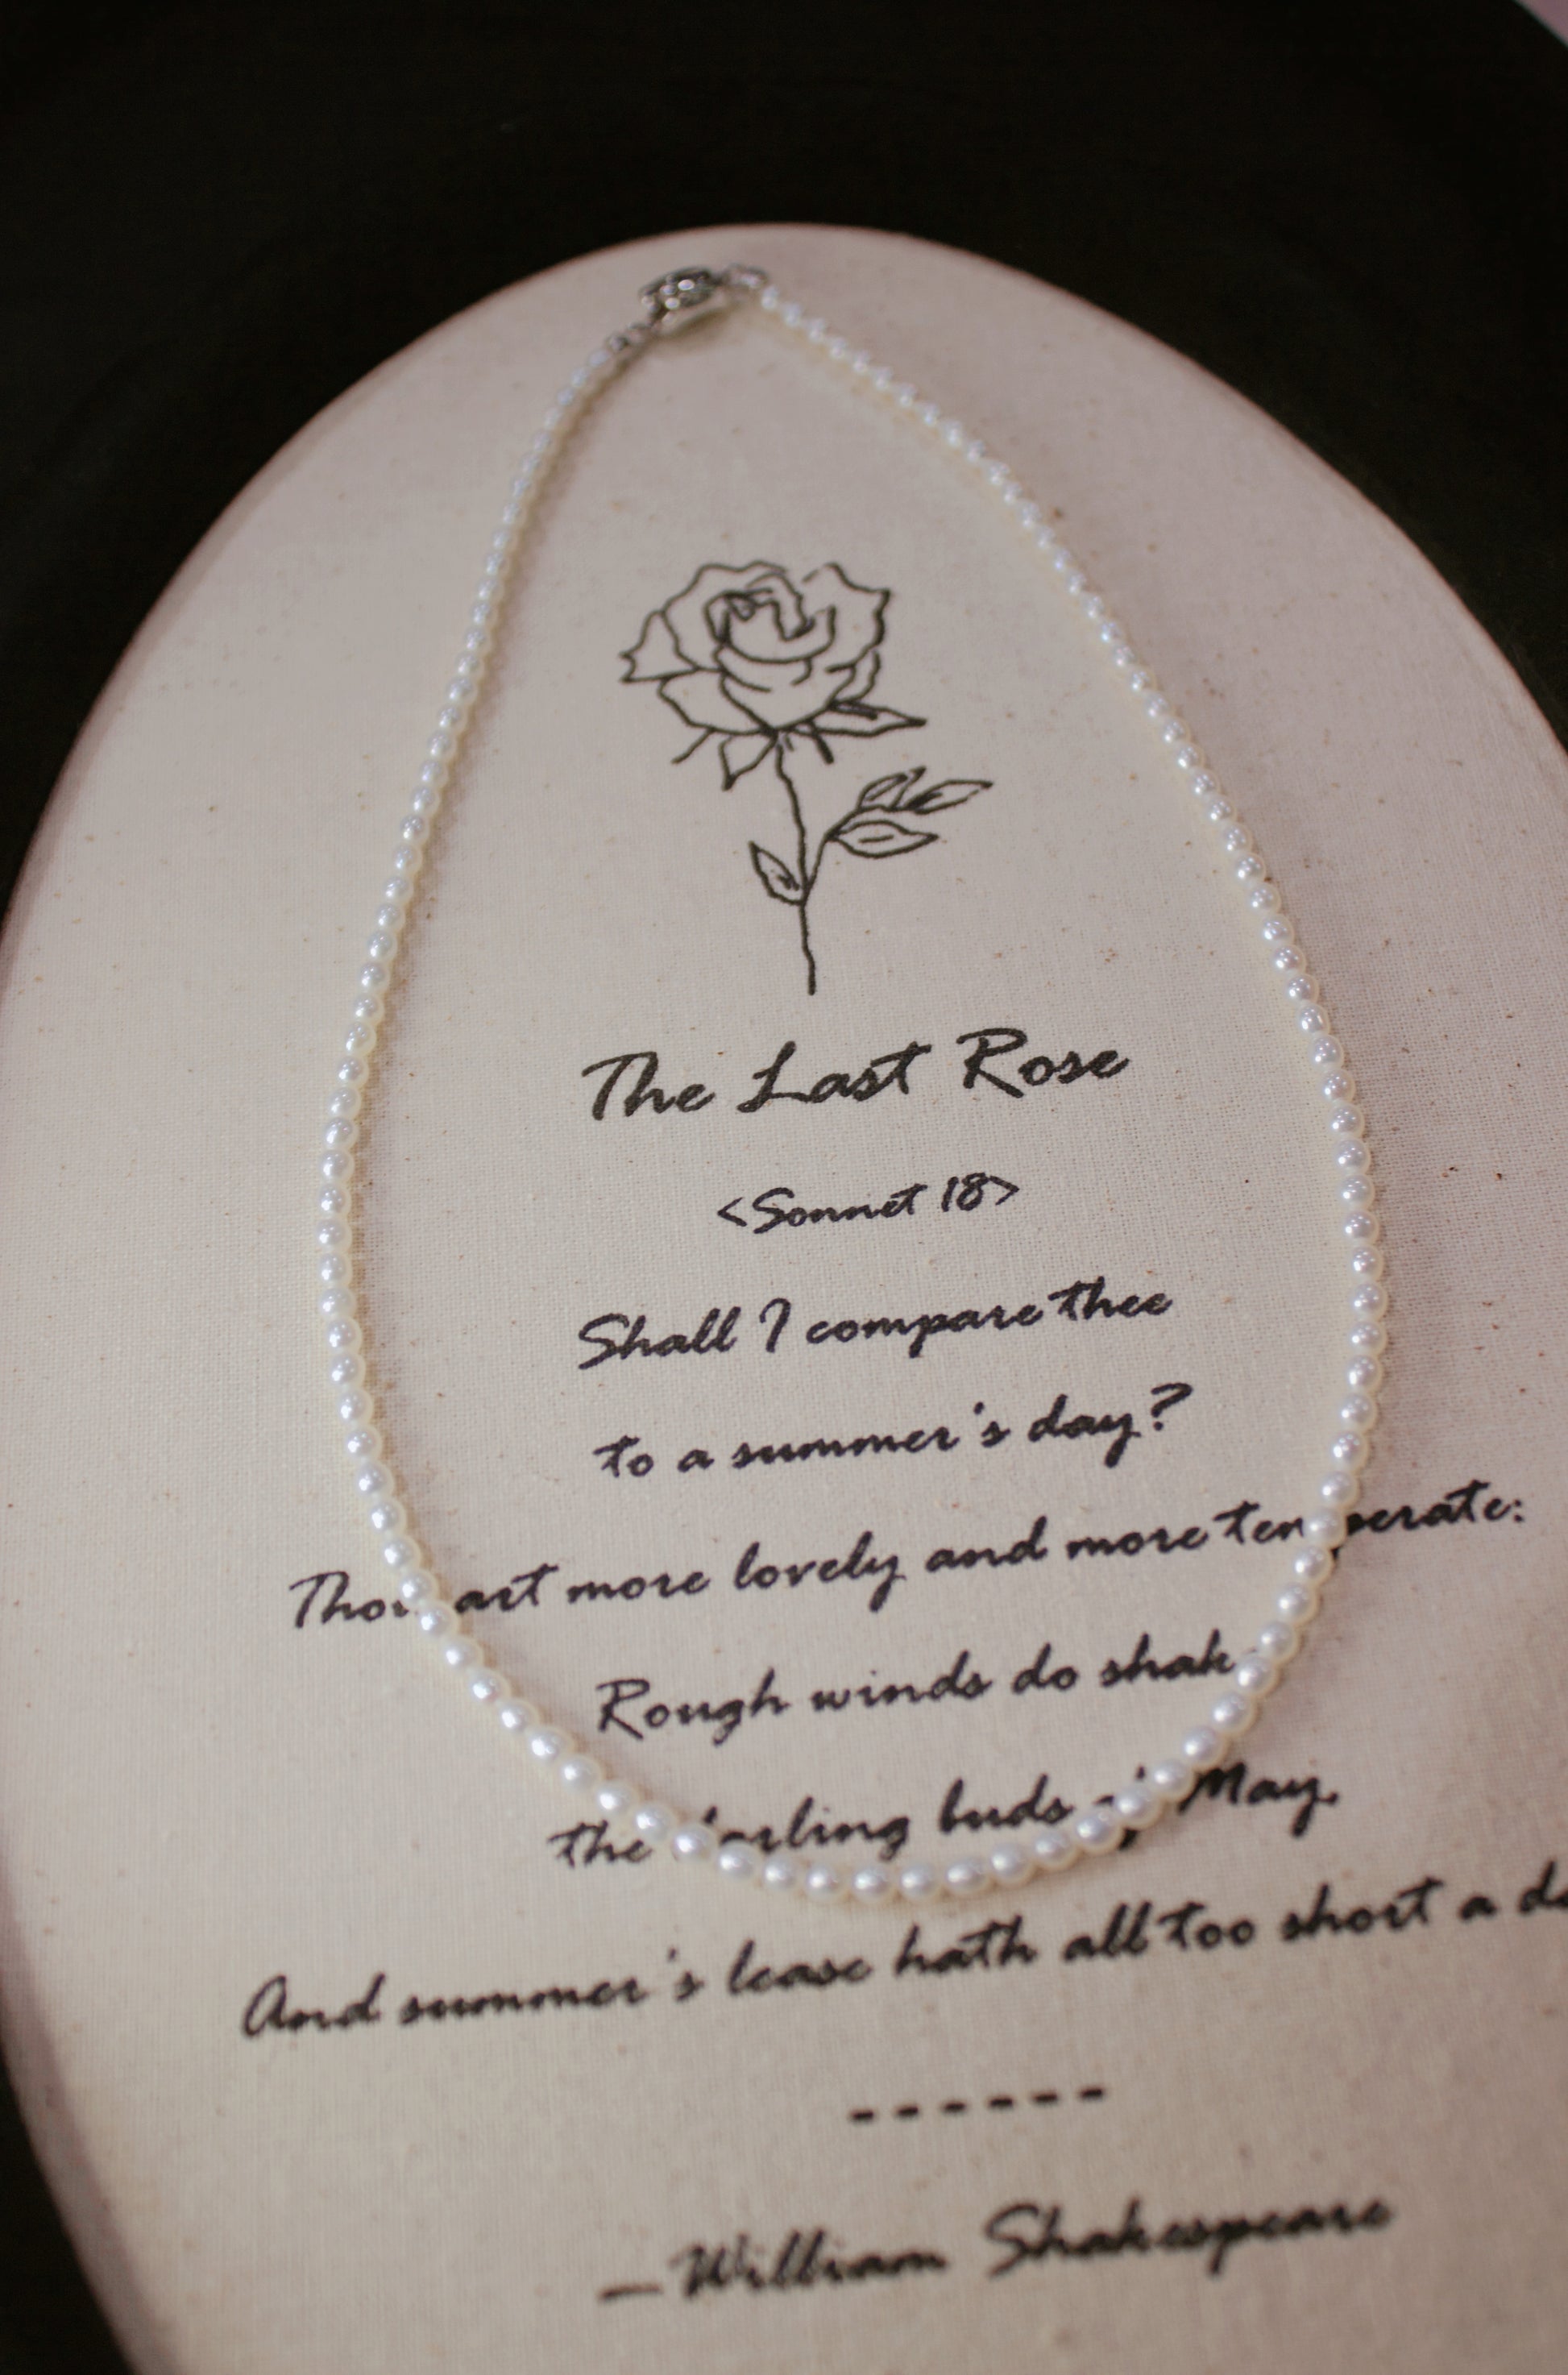 The Last Rose
<Sonnet 18>
Shall I compare thee
to a summer's day?
Thou art more lovely and more temperate:
Rough winds do shake
the darling buds of May,
And summer's lease hath all too short a
------
— William Shakespeare